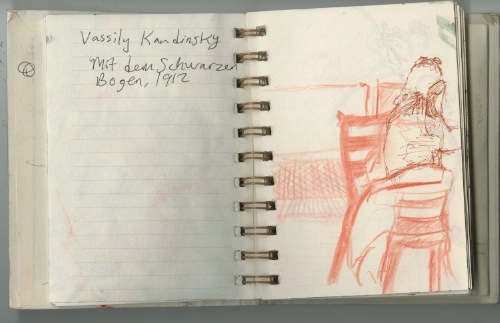 Vassily Kandinsky
Mit dem Schwarzen
Bogen, 1912